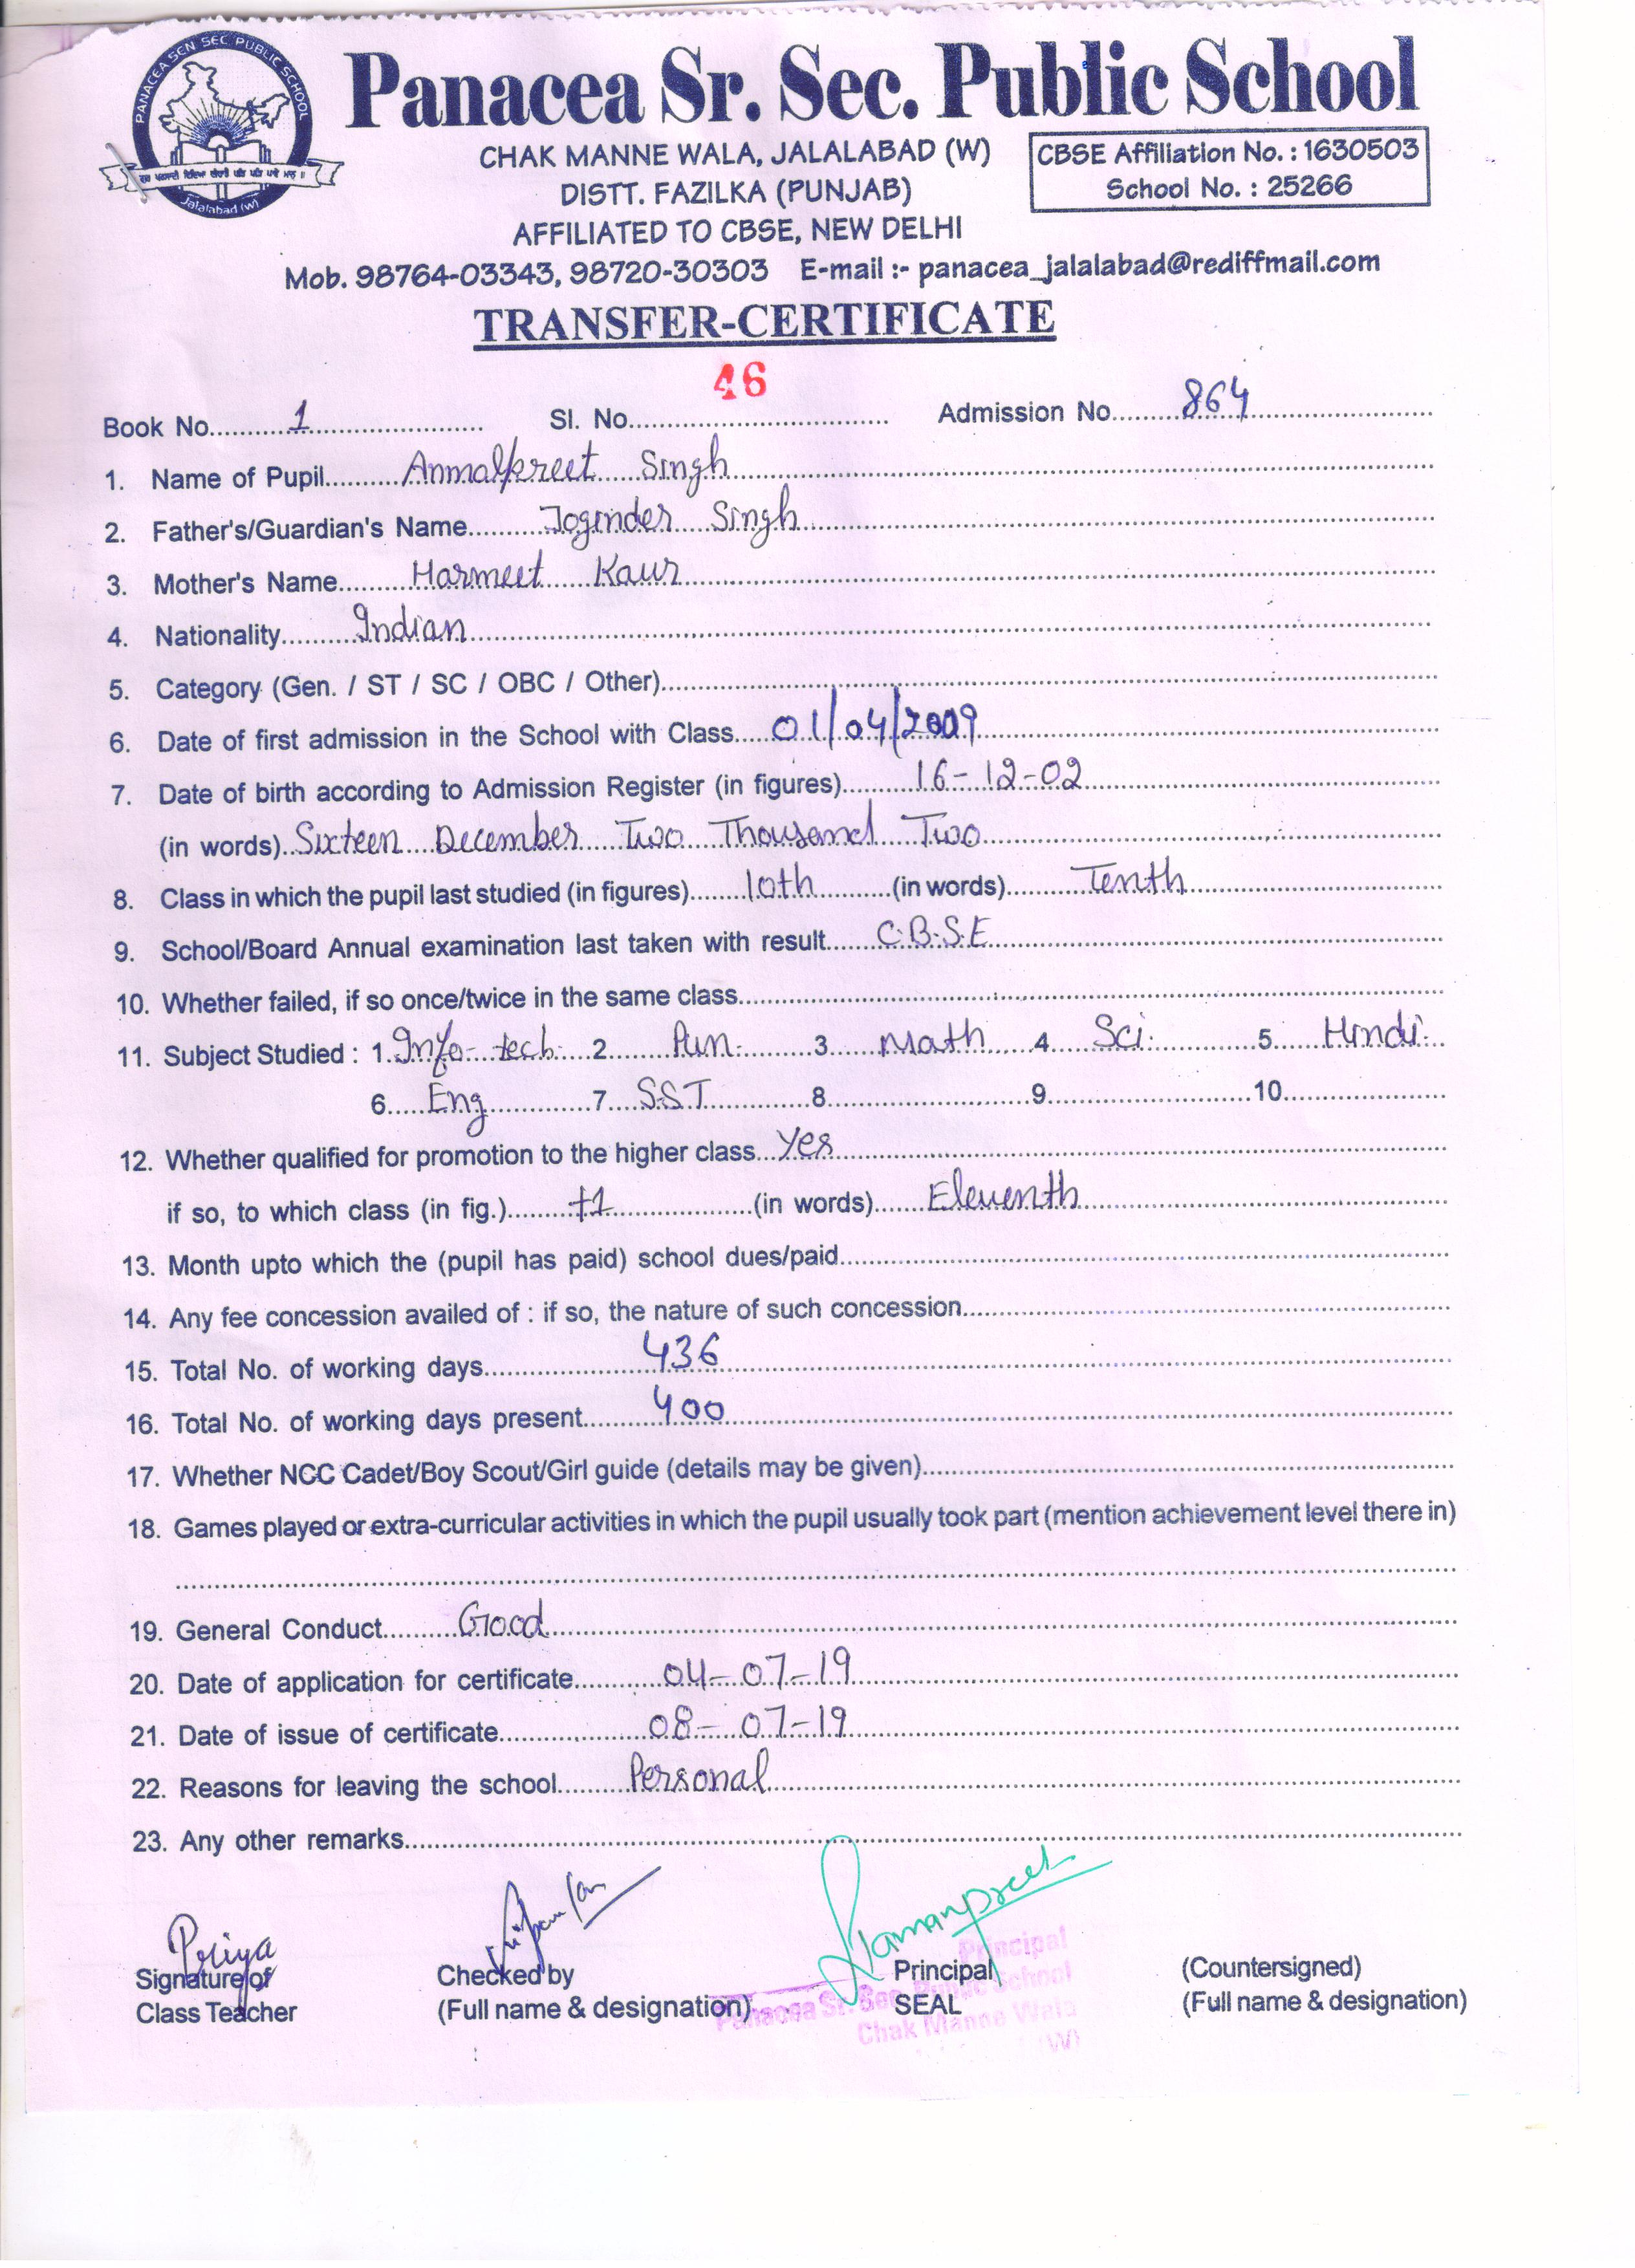 PANACEA SCN SEC PUBLIC SCHOOL
Jalalabad (W)
Panacea Sr. Sec. Public School
CHAK MANNE WALA, JALALABAD (W)
DISTT. FAZILKA (PUNJAB)
AFFILIATED TO CBSE, NEW DELHI
CBSE Affiliation No. : 1630503
School No. : 25266
Mob. 98764-03343, 98720-30303 E-mail :- panacea_jalalabad@rediffmail.com
TRANSFER-CERTIFICATE
Book No. 1 Sl. No. 46 Admission No. 864
1. Name of Pupil Anmolpreet Singh
2. Father's/Guardian's Name Joginder Singh
3. Mother's Name Harmeet Kaur
4. Nationality Indian
5. Category (Gen. / ST / SC / OBC / Other)
6. Date of first admission in the School with Class 01/04/2009
7. Date of birth according to Admission Register (in figures) 16-12-02
(in words) Sixteen December Two Thousand Two
8. Class in which the pupil last studied (in figures) 10th (in words) Tenth
9. School/Board Annual examination last taken with result C.B.S.E
10. Whether failed, if so once/twice in the same class
11. Subject Studied : 1. Info-tech. 2 Pun. 3 Math 4 Sci. 5 Hindi.
6 Eng 7 S.S.T 8 9 10
12. Whether qualified for promotion to the higher class Yes
if so, to which class (in fig.) +1 (in words) Eleventh
13. Month upto which the (pupil has paid) school dues/paid
14. Any fee concession availed of : if so, the nature of such concession
15. Total No. of working days 436
16. Total No. of working days present 400
17. Whether NCC Cadet/Boy Scout/Girl guide (details may be given)
18. Games played or extra-curricular activities in which the pupil usually took part (mention achievement level there in)
19. General Conduct Good
20. Date of application for certificate 04-07-19
21. Date of issue of certificate 08-07-19
22. Reasons for leaving the school Personal
23. Any other remarks
Priya
Signature of
Class Teacher
Checked by
(Full name & designation)
Principal
SEAL
(Countersigned)
(Full name & designation)
Principal
Panacea Sr. Sec. Public School
Chak Manne Wala
(W)